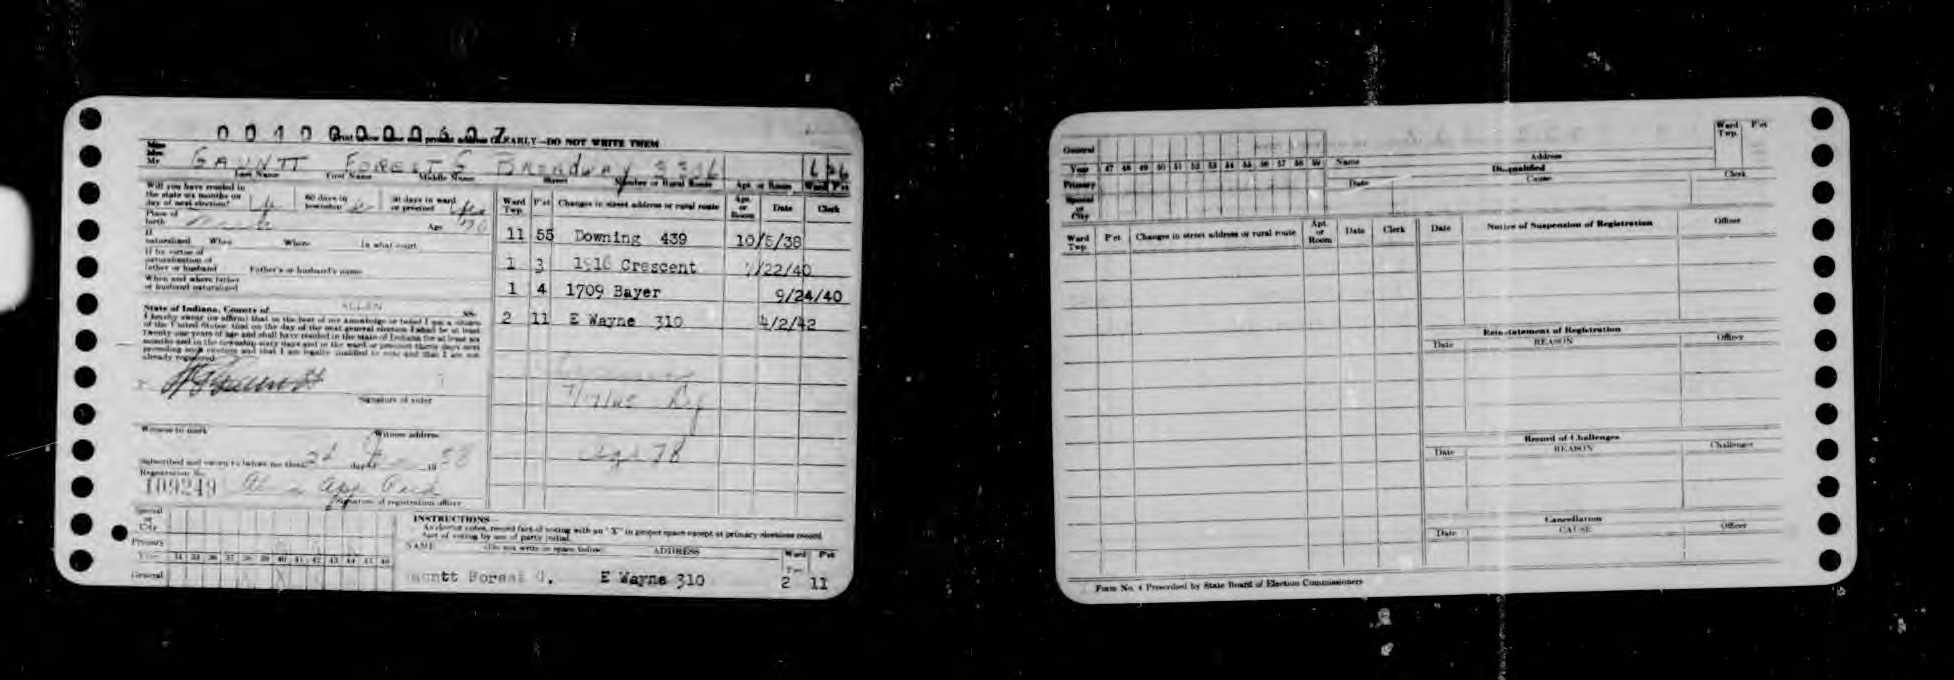 0 0 1 0 0 0 0 0 6 0 7
Print Name and precise address CLEARLY—DO NOT WRITE THEM
Miss
Mrs.
Mr. GAUNTT FOREST G BROADWAY 3306
Last Name First Name Middle Name Street Number or Rural Route Apt. or Room Ward P'ct
Will you have resided in the state six months on day of next election?
60 days in township
30 days in ward or precinct
Place of birth
Age
If naturalized When Where In what court
If by virtue of naturalization of father or husband Father's or husband's name
When and where father or husband naturalized
State of Indiana, County of ALLEN SS:
I hereby swear (or affirm) that to the best of my knowledge or belief I am a citizen
of the United States; that on the day of the next general election I shall be at least
twenty-one years of age and shall have resided in the state of Indiana for at least six
months and in the township sixty days and in the ward or precinct thirty days next
preceding such election and that I am legally qualified to vote and that I am not
already registered.
Signature of voter
Witness to mark Witness address
Subscribed and sworn to before me this day of 19
Registration No.
109249
Signature of registration officer
Ward Twp. P'ct Changes in street address or rural route Apt. or Room Date Clerk
11 55 Downing 439 10/5/38
1 3 1916 Crescent /22/40
1 4 1709 Bayer 9/24/40
2 11 E Wayne 310 4/2/42
Age 78
Special or City
Primary
Year 34 35 36 37 38 39 40 41 42 43 44 45 46
General X X
INSTRUCTIONS—
As elector votes, record fact of voting with an "X" in proper space except at primary elections record
fact of voting by use of party initial.
NAME (Do not write in space below) ADDRESS Ward Twp. P'ct
auntt Forest G. E Wayne 310 2 11
General
Year 47 48 49 50 51 52 53 54 55 56 57 58 59
Primary
Special or City
Name Address Ward Twp. P'ct
Disqualified
Date Cause Clerk
Ward Twp. P'ct Changes in street address or rural route Apt. or Room Date Clerk
Date Notice of Suspension of Registration Officer
Reinstatement of Registration
Date REASON Officer
Record of Challenges
Date REASON Challenger
Cancellation
Date CAUSE Officer
Form No. 4 Prescribed by State Board of Election Commissioners